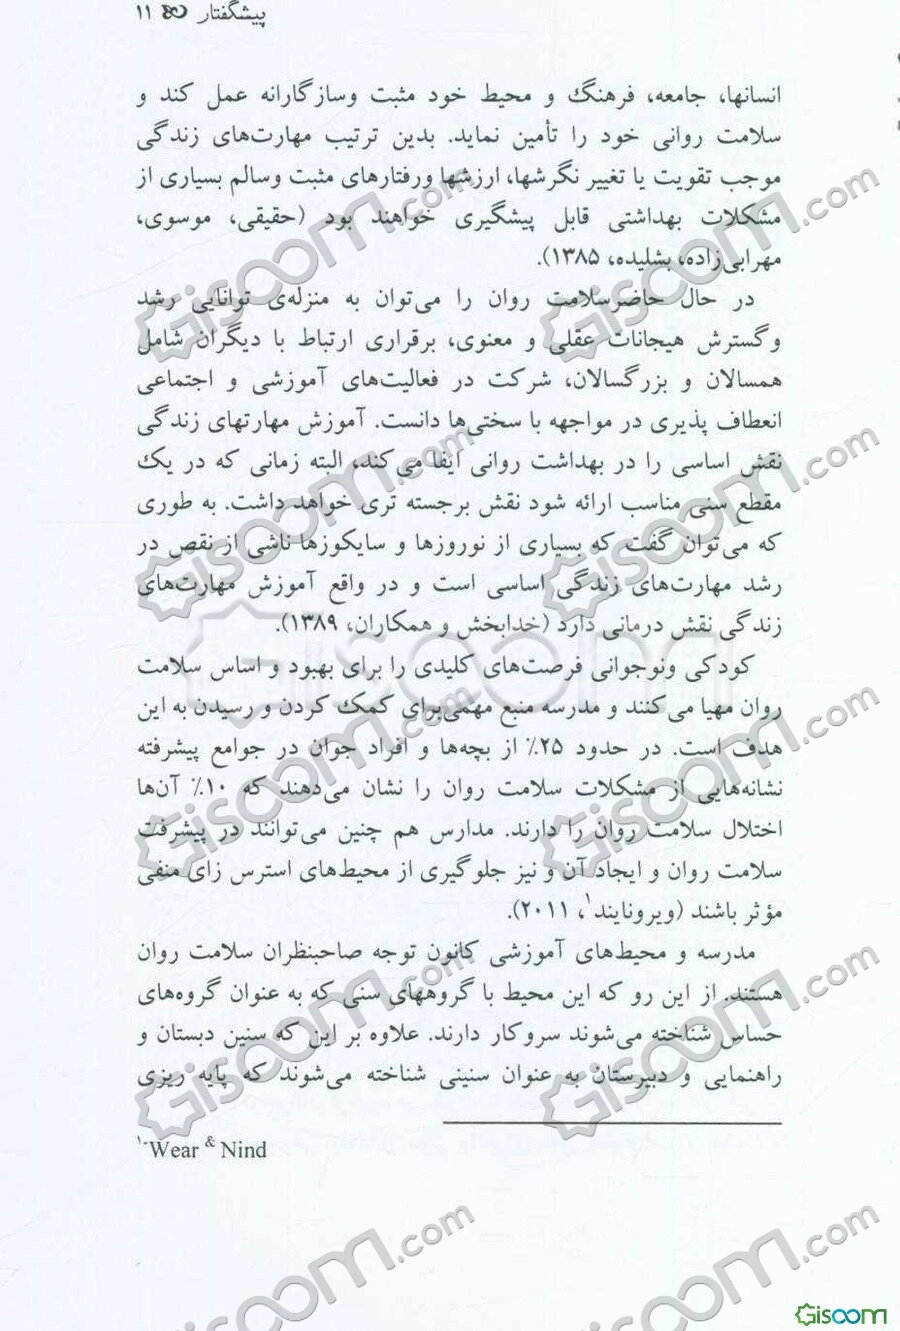 پیشگفتار ۱۱
انسانها، جامعه، فرهنگ و محیط خود مثبت وسازگارانه عمل کند و
سلامت روانی خود را تأمین نماید. بدین ترتیب مهارت‌های زندگی
موجب تقویت یا تغییر نگرشها، ارزشها ورفتارهای مثبت وسالم بسیاری از
مشکلات بهداشتی قابل پیشگیری خواهند بود (حقیقی، موسوی،
مهرابی‌زاده، بشلیده، ۱۳۸۵).
در حال حاضرسلامت روان را می‌توان به منزله‌ی توانایی رشد
وگسترش هیجانات عقلی و معنوی، برقراری ارتباط با دیگران شامل
همسالان و بزرگسالان، شرکت در فعالیت‌های آموزشی و اجتماعی
انعطاف پذیری در مواجهه با سختی‌ها دانست. آموزش مهارتهای زندگی
نقش اساسی را در بهداشت روانی ایفا می‌کند، البته زمانی که در یک
مقطع سنی مناسب ارائه شود نقش برجسته تری خواهد داشت. به طوری
که می‌توان گفت که بسیاری از نوروزها و سایکوزها ناشی از نقص در
رشد مهارت‌های زندگی اساسی است و در واقع آموزش مهارت‌های
زندگی نقش درمانی دارد (خدابخش و همکاران، ۱۳۸۹).
کودکی ونوجوانی فرصت‌های کلیدی را برای بهبود و اساس سلامت
روان مهیا می‌کنند و مدرسه منبع مهمی‌برای کمک کردن و رسیدن به این
هدف است. در حدود ۲۵٪ از بچه‌ها و افراد جوان در جوامع پیشرفته
نشانه‌هایی از مشکلات سلامت روان را نشان می‌دهند که ۱۰٪ آن‌ها
اختلال سلامت روان را دارند. مدارس هم چنین می‌توانند در پیشرفت
سلامت روان و ایجاد آن و نیز جلوگیری از محیط‌های استرس زای منفی
مؤثر باشند (ویرونایند۱، ۲۰۱۱).
مدرسه و محیط‌های آموزشی کانون توجه صاحبنظران سلامت روان
هستند. از این رو که این محیط با گروههای سنی که به عنوان گروه‌های
حساس شناخته می‌شوند سروکار دارند. علاوه بر این که سنین دبستان و
راهنمایی و دبیرستان به عنوان سنینی شناخته می‌شوند که پایه ریزی
۱-Wear & Nind
Gisoom